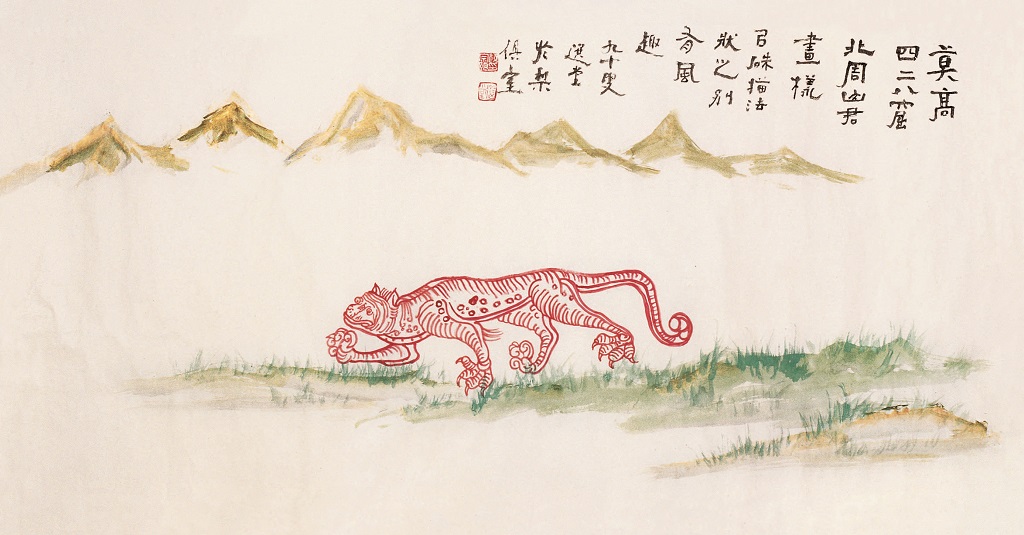 莫高
四二八窟
北周山君
畫樣
㠯硃描法
狀之別
有風
趣
九十叟
選堂
於梨
俱室